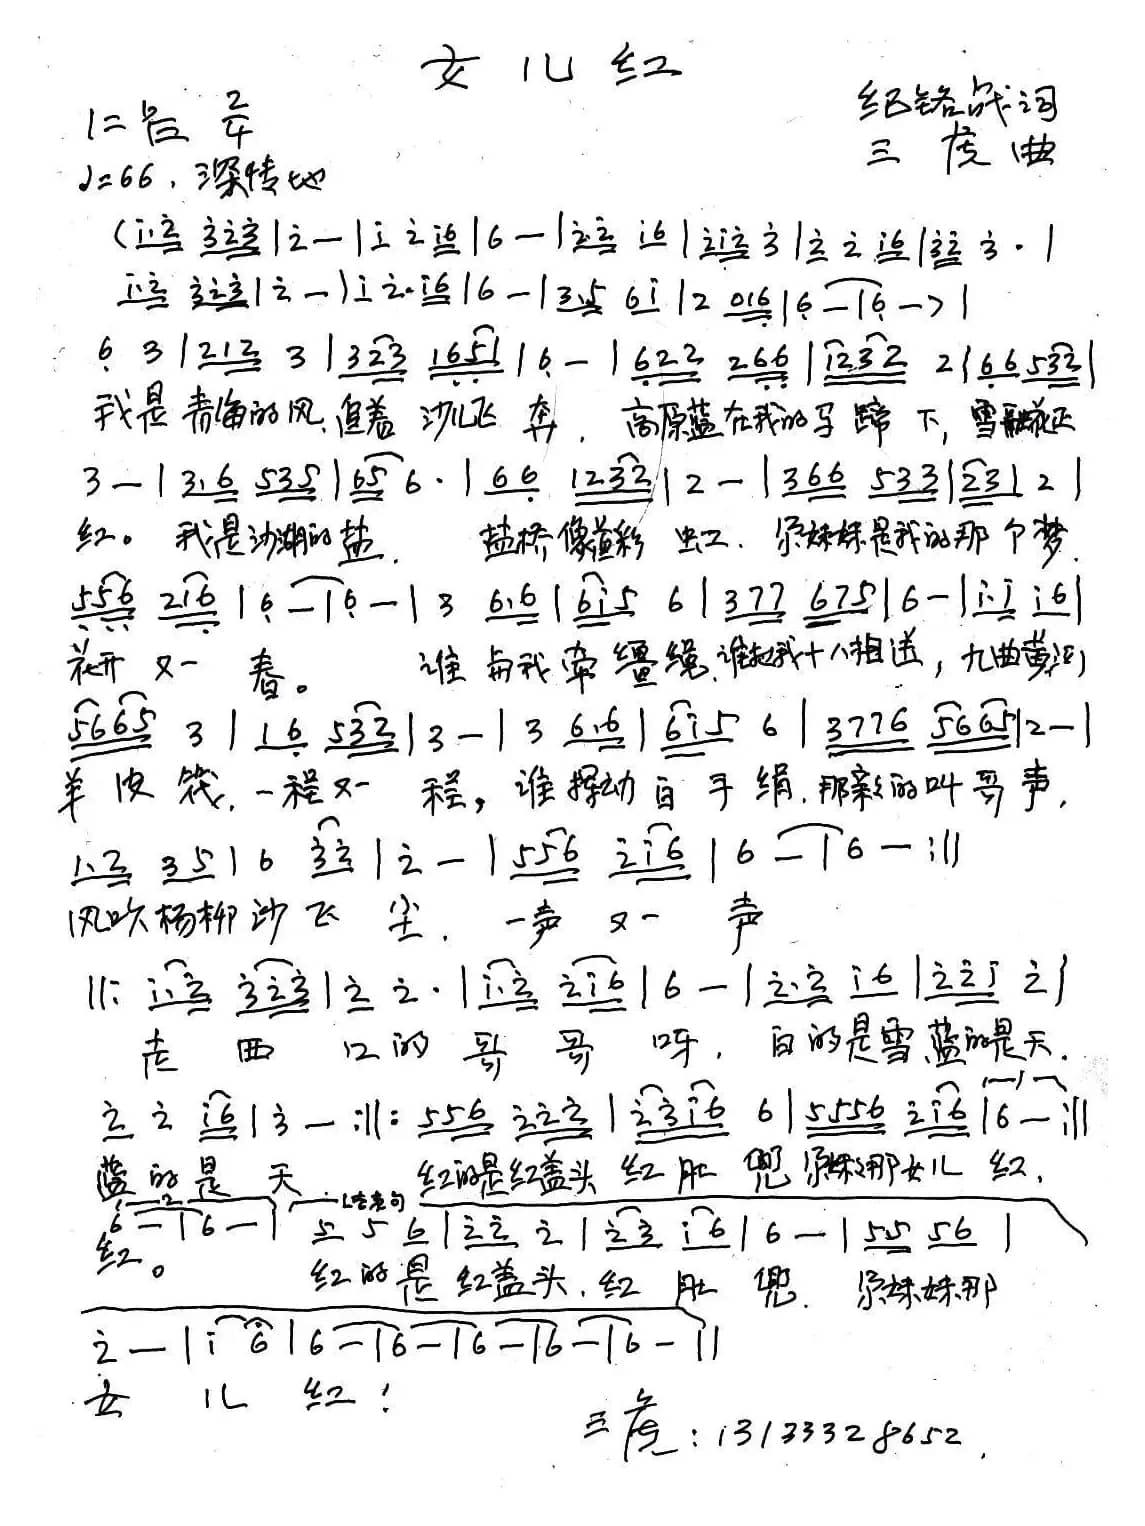 女儿红
纪铭战词
1=bE 2/4
三虎曲
♩=66，深情地
(i·2 323|2 —|i 2 i6|6 —|2·2 i6|2i2 3|2 2 i6|32 3·|
i·2 323|2 —|i 2·i6|6 —|3·5 6i|2 016|6 —|6 —)|
6 3|212 3|323 1651|6 —|622 266|1232 2|66 532|
我是青海的风，追着沙儿飞奔，高原蓝在我的马蹄下，雪融花正
3 —|3·6 535|656·|66 1232|2 —|366 533|231 2|
红。我是沙湖的盐，盐桥像道彩虹．尕妹妹是我的那个梦．
556 2i6|6 —|6 —|3 6·6|6i5 6|377 675|6 —|i·i i6|
花开又一春。谁与我牵缰绳，谁把我十八相送，九曲黄河
5665 3|16 532|3 —|3 6·6|6i5 6|3776 5665|2 —|
羊皮筏，一程又一程，谁挥动白手绢，那亲亲的叫哥声，
1·2 35|6 32|2 —|556 2i6|6 —|6 —:||
风吹杨柳沙飞尘．一声又一声
||:i·2 323|2 2·|i·2 2i6|6 —|2·2 i6|22i 2|
走西口的哥哥呀，白的是雪，蓝的是天．
2 2 i6|3 —:||:556 222|23i6 6|5556 2i6|6 —:||
蓝的是天 红的是红盖头 红肚兜 尕妹妹那女儿红，
6 —|6 —| 结束句 5 5 6|22 2|23 i6|6 —|55 56|
红。红的是红盖头，红肚兜．尕妹妹那
2 —|i 6|6 —|6 —|6 —|6 —|6 —||
女儿红！
三虎：13133328652